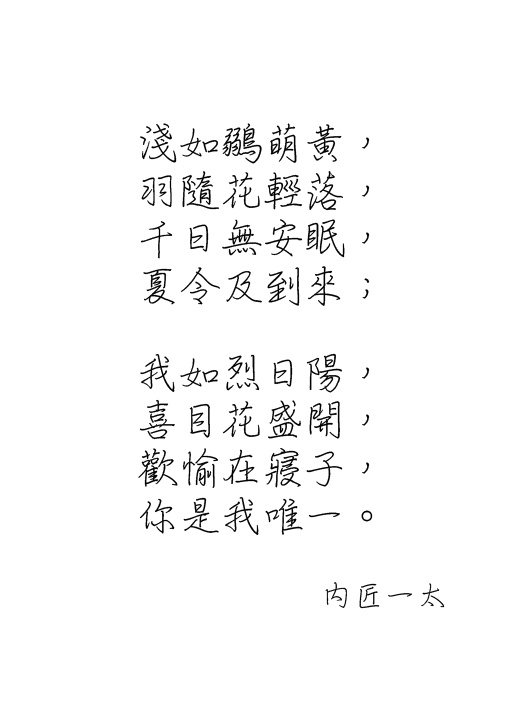 淺如鶸萌黃，
羽隨花輕落，
千日無安眠，
夏令及到來；
我如烈日陽，
喜目花盛開，
歡愉在寢子，
你是我唯一。
內匠一太